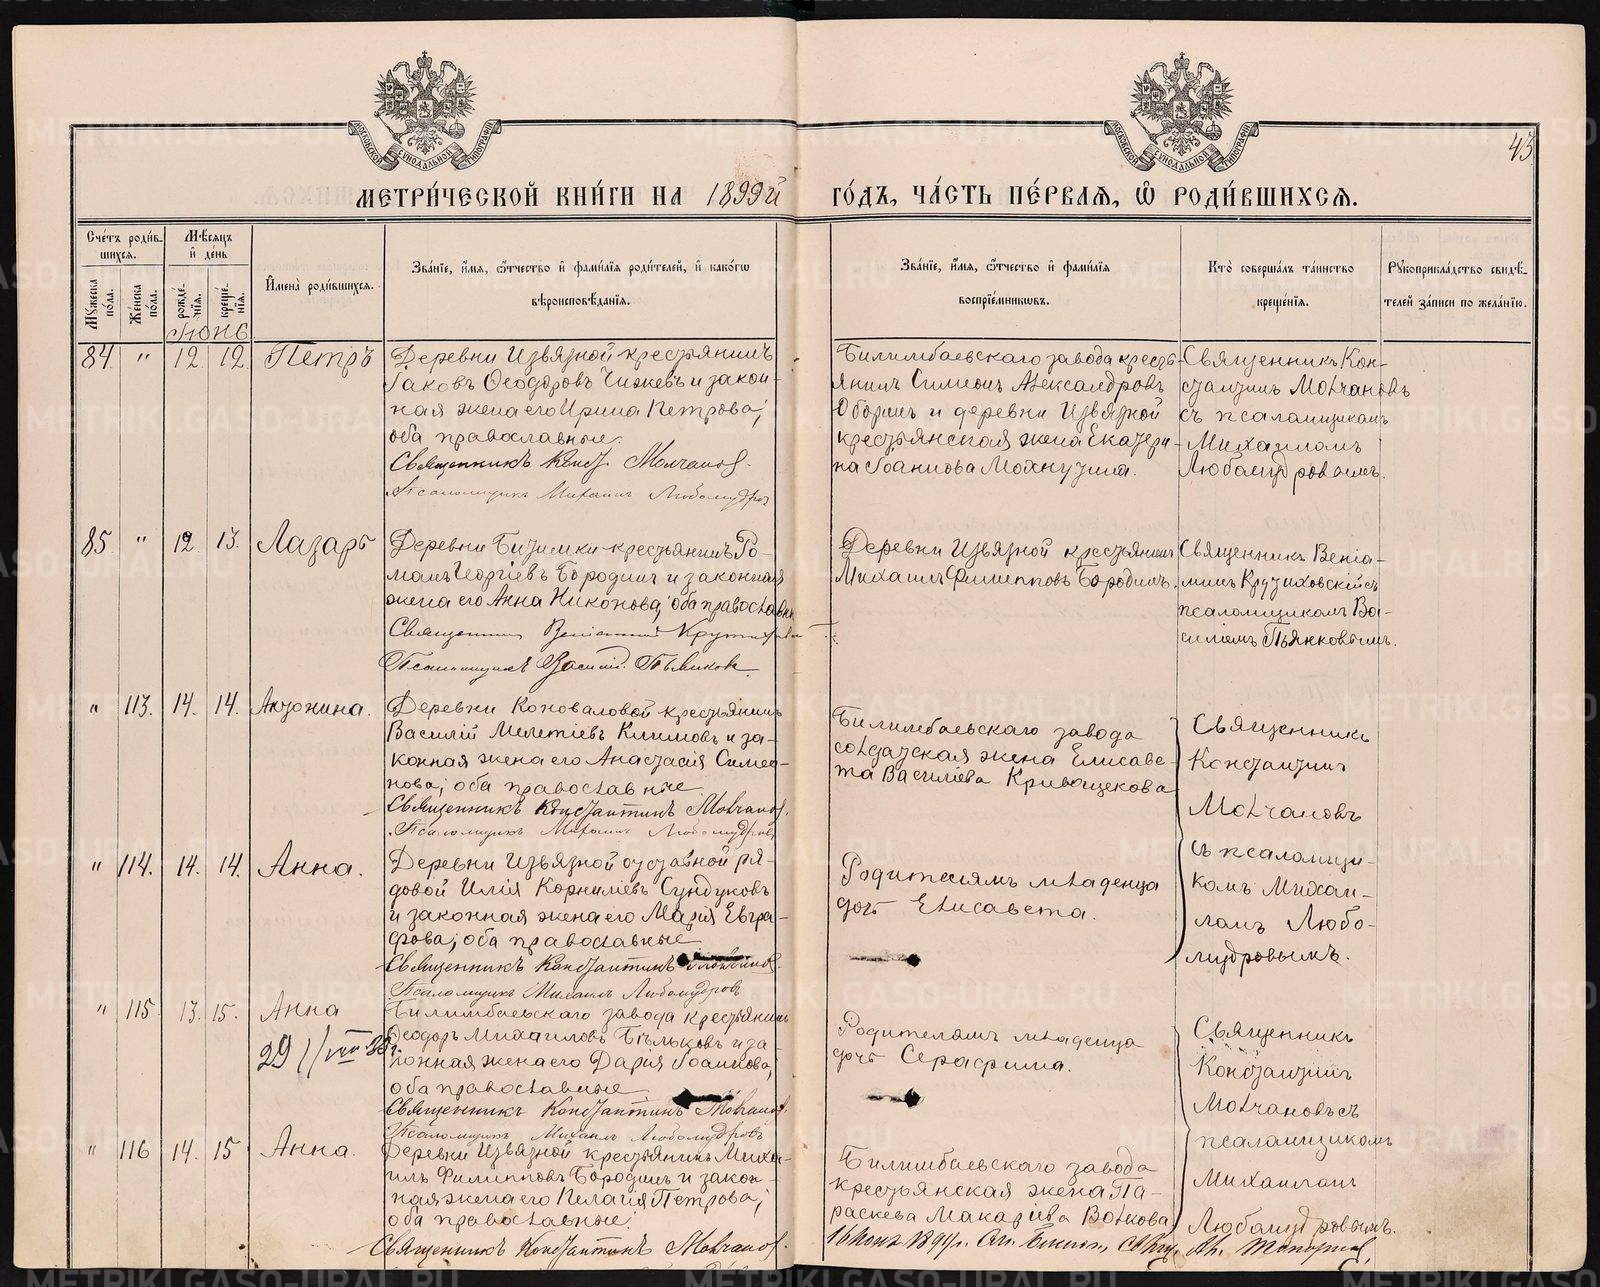 43
МЕТРИ́ЧЕСКОЙ КНИ́ГИ НА 1899й ГО́ДЪ, ЧА́СТЬ ПЕ́РВАЯ, Ѡ РОДИ́ВШИХСЯ.
Сче́тъ роди́в-
шихся.
Мꙋжеска по́ла.
Же́нска по́ла.
Мѣ́сяцъ
и҆ де́нь
рожде́-
нїя.
креще́-
нїя.
И҆мена̀ роди́вшихся.
Зва́нїе, и҆́мя, ѻ҆́тчество и҆ фами́лїя роди́телей, и҆ како́гѡ
вѣроисповѣ́данїя.
Зва́нїе, и҆́мя, ѻ҆́тчество и҆ фами́лїя
воспрїе́мниковъ.
Кто̀ соверша́лъ та́инство
креще́нїя.
Рꙋкоприкла́дство свидѣ́-
телей за́писи по жела́нїю.
Іюнь
84 " 12. 12. Петръ
Деревни Извязной крестьянинъ
Іаковъ Ѳеодоровъ Чижевъ и закон-
ная жена его Ирина Петрова;
оба православные.
Священникъ Конст. Молчановъ.
Псаломщикъ Михаилъ Любомудровъ
Билимбаевскаго завода кресть-
янинъ Симеонъ Александровъ
Оборинъ и деревни Извязной
крестьянская жена Екатери-
на Іоаннова Мохнутина.
Священникъ Кон-
стантинъ Молчановъ
съ псаломщикомъ
Михаиломъ
Любомудровымъ.
85. " 12. 13. Лазарь
Деревни Битимки крестьянинъ Ро-
манъ Георгіевъ Бородинъ и законная
жена его Анна Никонова; оба православн
Священникъ Веніаминъ
Псаломщикъ Василій Пьянковъ.
Деревни Извязной крестьянинъ
Михаилъ Филипповъ Бородинъ.
Священникъ Веніа-
минъ Крутиховскій съ
псаломщикомъ Ва-
силіемъ Пьянковымъ.
" 113. 14. 14. Антонина.
Деревни Коноваловой крестьянинъ
Василій Мелетіевъ Климовъ и за-
конная жена его Анастасія Симео-
нова; оба православные.
Священникъ Константинъ Молчановъ.
Псаломщикъ Михаилъ Любомудровъ
Билимбаевскаго завода
солдатская жена Елисаве-
та Василіева Кривощекова
Священникъ
Константинъ
Молчановъ
съ псаломщи-
комъ Михаи-
ломъ Любо-
мудровымъ.
" 114. 14. 14. Анна.
Деревни Извязной отставной ря-
довой Илія Корниліевъ Сундуковъ
и законная жена его Марія Евгра-
фова; оба православные
Священникъ Константинъ
Псаломщикъ Михаилъ Любомудровъ
Родителямъ младенца
дочь Елисавета.
" 115. 13. 15. Анна
29
Билимбаевскаго завода крестьянинъ
Ѳеодоръ Михаиловъ Бѣльковъ и за-
конная жена его Дарія Іоаннова;
оба православные
Священникъ Константинъ Молчановъ.
Псаломщикъ Михаилъ Любомудровъ
Родителямъ младенца
дочь Серафима.
Священникъ
Константинъ
Молчановъ съ
псаломщикомъ
Михаиломъ
Любомудровымъ.
" 116 14. 15 Анна.
Деревни Извязной крестьянинъ Миха-
илъ Филипповъ Бородинъ и закон-
ная жена его Пелагія Петрова;
оба православные.
Священникъ Константинъ Молчановъ.
Билимбаевскаго завода
крестьянская жена Па-
раскева Макаріева Волкова